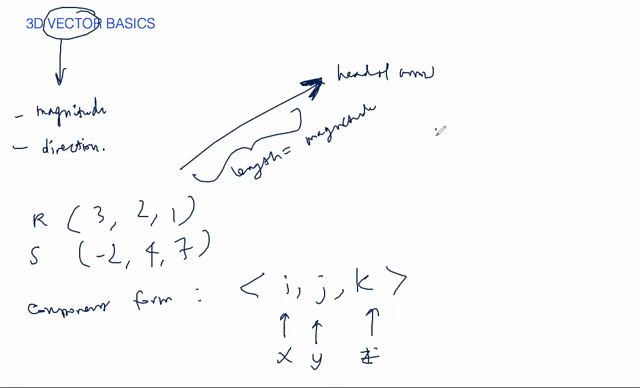 3D VECTOR BASICS
head of arrow
- magnitude
- direction.
length = magnitude
R (3, 2, 1)
S (-2, 4, 7)
component form : < i, j, k >
x y z